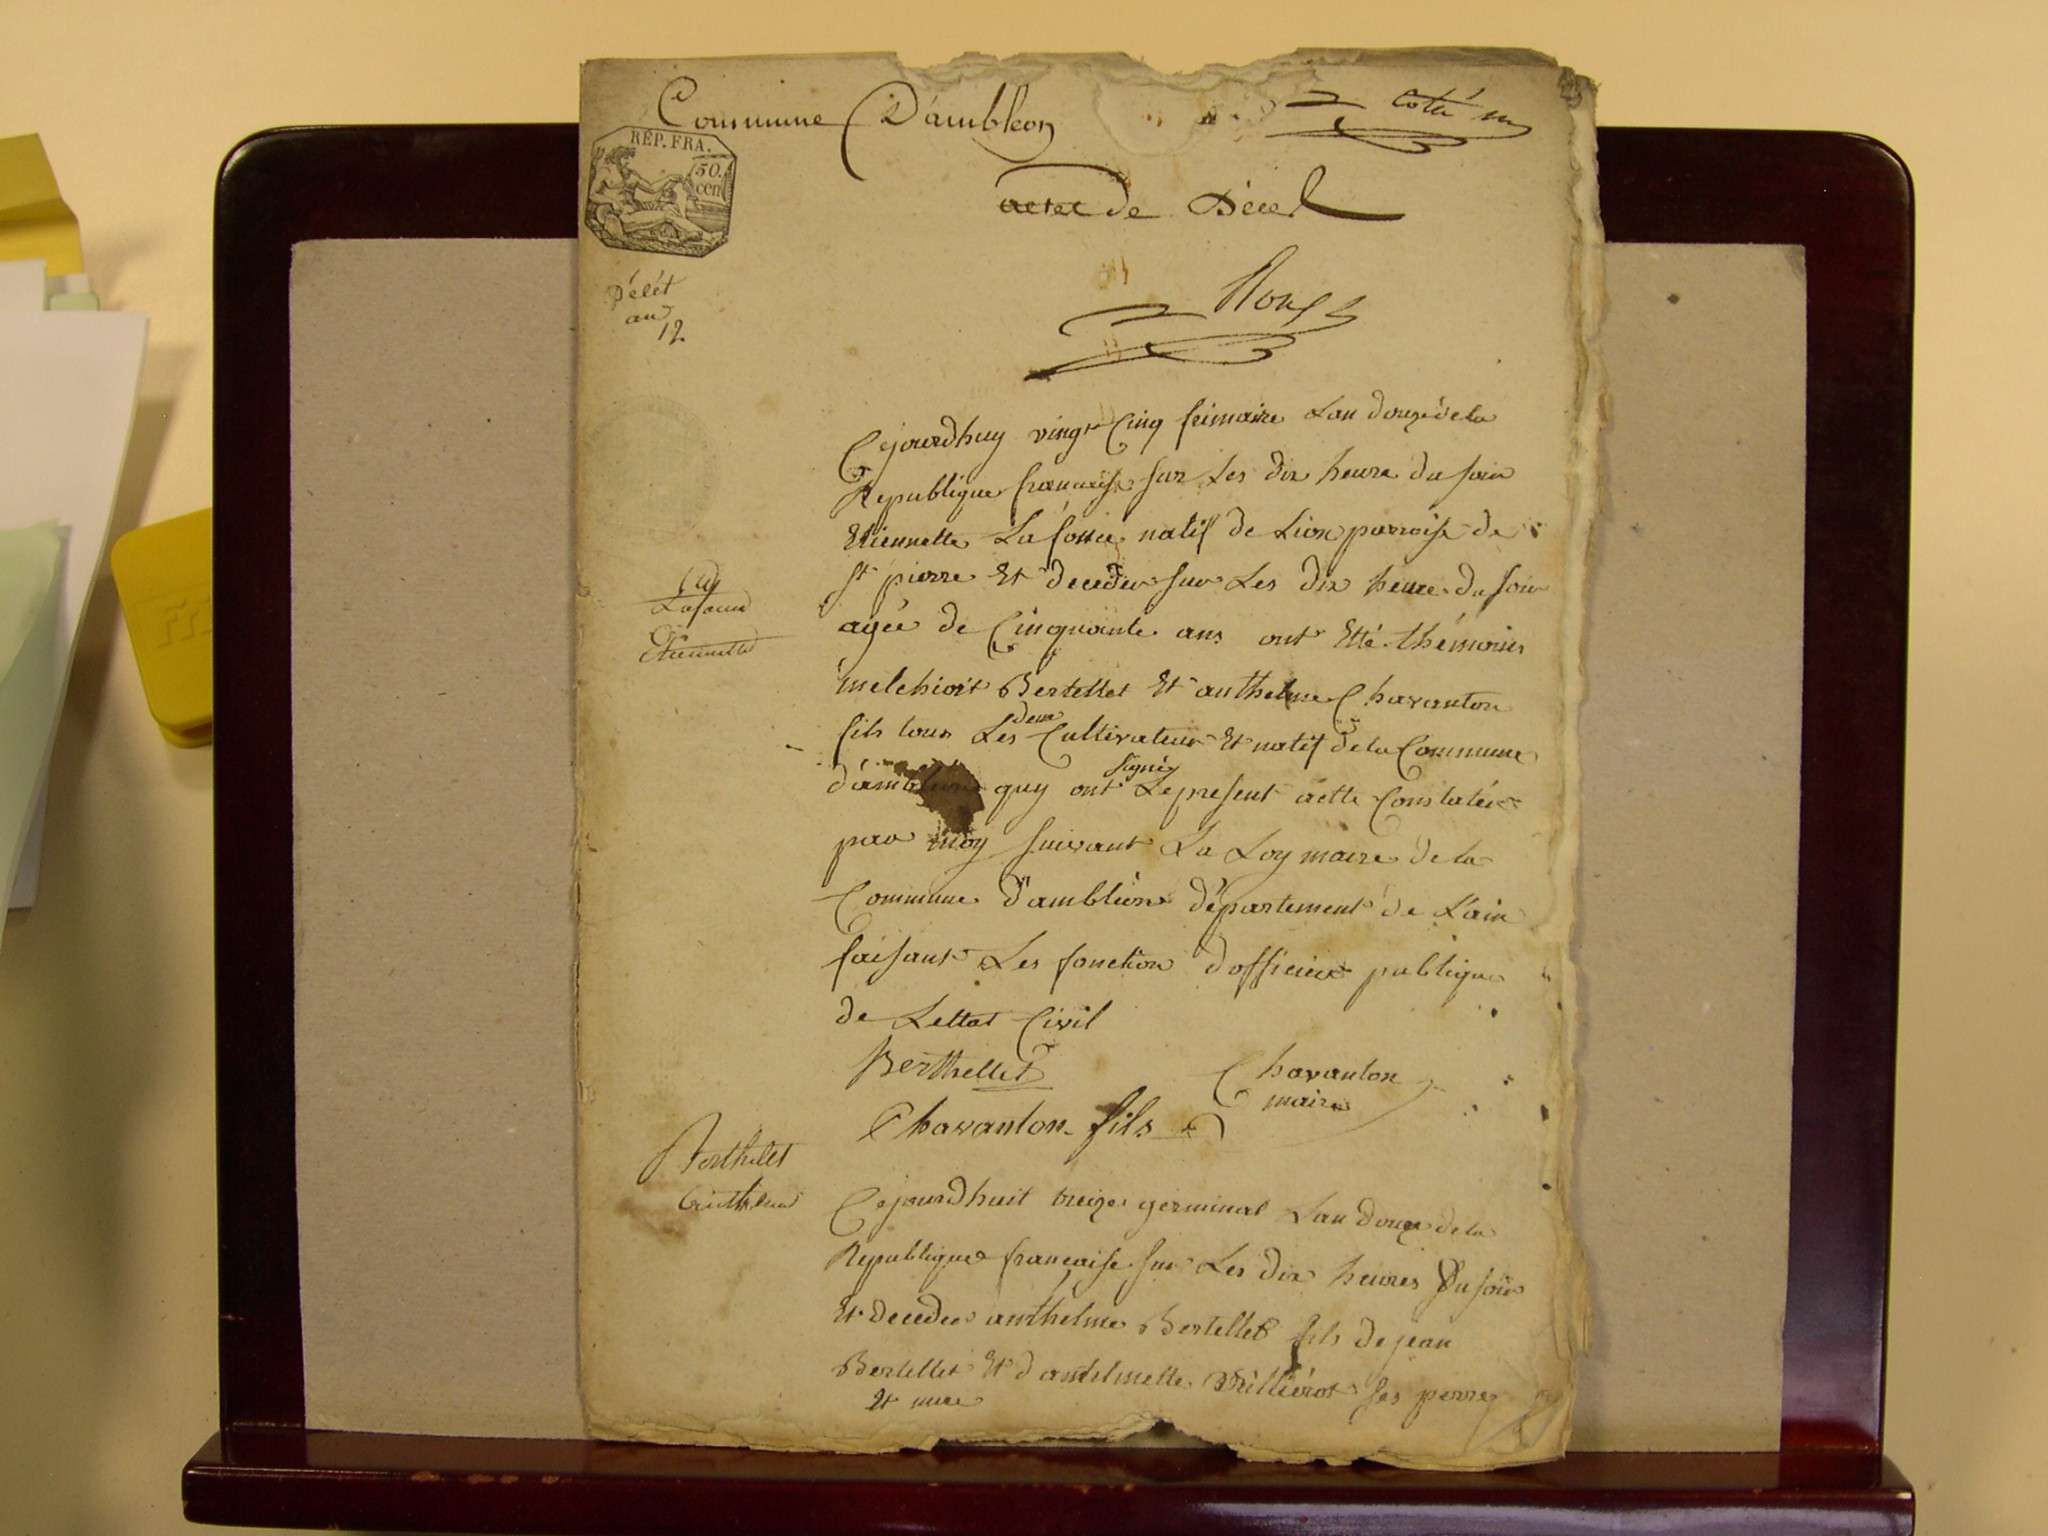 Commune D'ambléon
cotté
REP. FRA.
50.
cen
acte de Décé
Décét
an
12
Cejourdhuy vingt Cinq frimaire Lan douze de la
Republique francaise sur Les dix heure du soir
Etiennette La fossée natif de Lion parroise de
St pierre Et decedée sur Les dix heure du soir
agée de Cinquante ans ont Etté thémoins
melchiort Bertellet Et anthelme Chavanton
fils tous Les deux Cultivateur Et natif de la Commune
d'ambléon quy ont signéz Le present actte Constatée
par moy suivant La Loy maire de la
Commune d'ambléon département de L'ain
faisant Les fonction dofficier publique
de Lettat Civil
Berthellet
Chavanton
maire
Chavanton fils
Etiennette
Berthelet
anthelme
Cejourdhuit treize germinal Lan douze de la
Republique française sur Les dix heures Du soir
Et decedee anthelme Bertellet fils de jean
Bertellet Et d'antelmette ses perre
Et mere